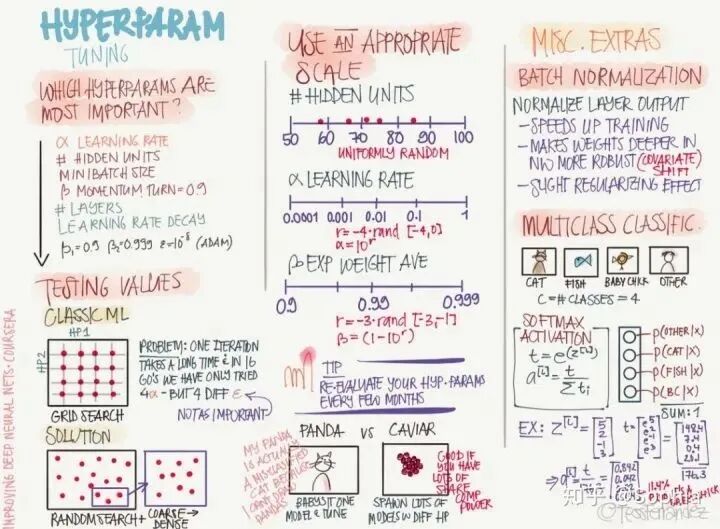 HYPERPARAM
TUNING
WHICH HYPERPARAMS ARE
MOST IMPORTANT?
α LEARNING RATE
# HIDDEN UNITS
MINIBATCH SIZE
β MOMENTUM TURN = 0.9
# LAYERS
LEARNING RATE DECAY
β₁=0.9 β₂=0.999 ε=10⁻⁸ (ADAM)
TESTING VALUES
CLASSIC ML
HP1
HP2
GRID SEARCH
PROBLEM: ONE ITERATION
TAKES A LONG TIME & IN 16
GO'S WE HAVE ONLY TRIED
4α - BUT 4 DIFF ε
NOT AS IMPORTANT
SOLUTION
RANDOM SEARCH + COARSE→
DENSE
IMPROVING DEEP NEURAL NETS · COURSERA
USE AN APPROPRIATE
SCALE
# HIDDEN UNITS
50 60 70 80 90 100
UNIFORMLY RANDOM
α LEARNING RATE
0.0001 0.001 0.01 0.1 1
r = -4·rand [-4,0]
α = 10ʳ
β EXP WEIGHT AVE
0.9 0.99 0.999
r = -3·rand [-3,-1]
β = (1-10ʳ)
TIP
RE-EVALUATE YOUR HYP. PARAMS
EVERY FEW MONTHS
PANDA VS CAVIAR
MY PANDA
IS ACTUALLY
A MISCLASSIFIED
CAT BECAUSE
PANDAS
BABYSIT ONE
MODEL & TUNE
GOOD IF
YOU HAVE
LOTS OF
SHARE
COMP
POWER
SPAWN LOTS OF
MODELS W DIFF HP
MISC. EXTRAS
BATCH NORMALIZATION
NORMALIZE LAYER OUTPUT
- SPEEDS UP TRAINING
- MAKES WEIGHTS DEEPER IN
NW MORE ROBUST (COVARIATE
SHIFT)
- SLIGHT REGULARIZING EFFECT
MULTICLASS CLASSIFIC.
CAT FISH BABY CHICK OTHER
C = # CLASSES = 4
SOFTMAX
ACTIVATION
t = e^(z^[L])
a^[L] = t / Σtᵢ
P(OTHER|X)
P(CAT|X)
P(FISH|X)
P(BC|X)
SUM: 1
EX: z^[L] = [5 2 -1 3] t = [e⁵ e² e⁻¹ e³] = [148.4 7.4 0.4 20.1]
176.3
0.842
0.042
知乎